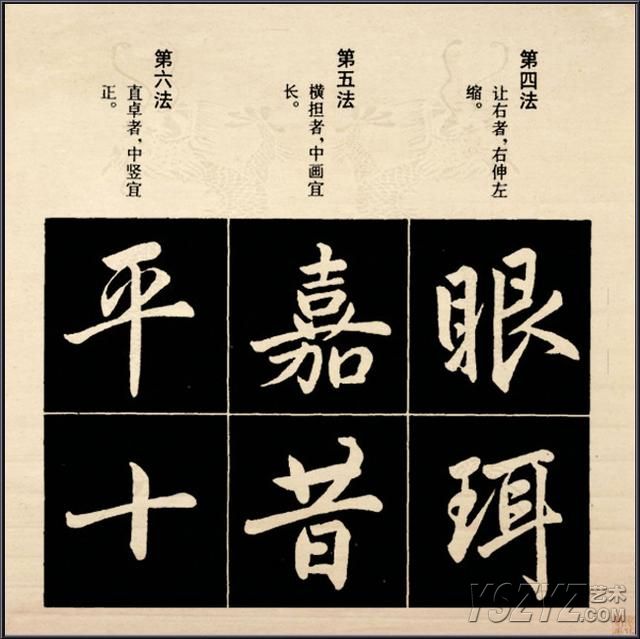 第四法
让右者，右伸左
缩。
第五法
横担者，中画宜
长。
第六法
直卓者，中竖宜
正。
眼
珥
嘉
昔
平
十
YSZYZ艺术
.COM